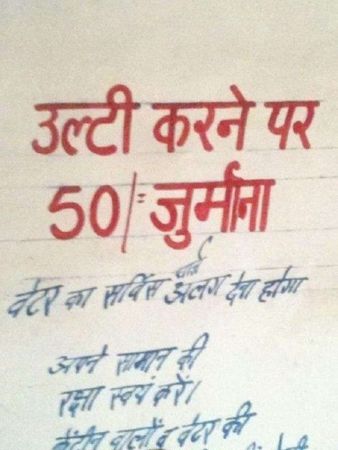 उल्टी करने पर
50/= जुर्माना
वेटर का सर्विस चार्ज अलग देना होगा
अपने सामान की
रक्षा स्वयं करें।
कैंटीन वालों व वेटर की